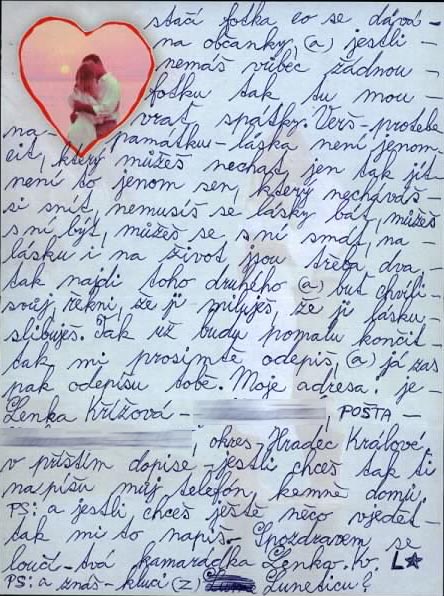 stačí fotka co se dává-
na občanky, (a) jestli-
nemáš vůbec žádnou-
fotku tak tu mou-
vrať spátky. Verš-protebe
na- památku-láska není jenom-
cit, který můžeš nechat jen tak jít-
není to jenom sen, který necháváš-
si snít, nemusíš se lásky bát, můžeš
s ní být, můžeš se s ní smát, na-
lásku i na život jsou třeba dva,
tak najdi toho druhého (a) buť chvíli-
svůj, řekni, že ji miluješ, že jí lásku-
slibuješ. Tak už budu pomalu končit-
tak mi prosimtě odepiš, (a) já zas
pak odepíšu tobě. Moje adresa: je-
Lenka Křížová- , POŠTA-
, okres-Hradec Králové,
v příštím dopise-jestli chceš tak ti
napíšu můj telefon, kemně domů,
PS: a jestli chceš ještě něco vjedět-
tak mi to napiš- Spozdravem se
loučí-tvá kamarádka Lenka. K. L★
PS: a znáš-kluci (z) Luneticu?